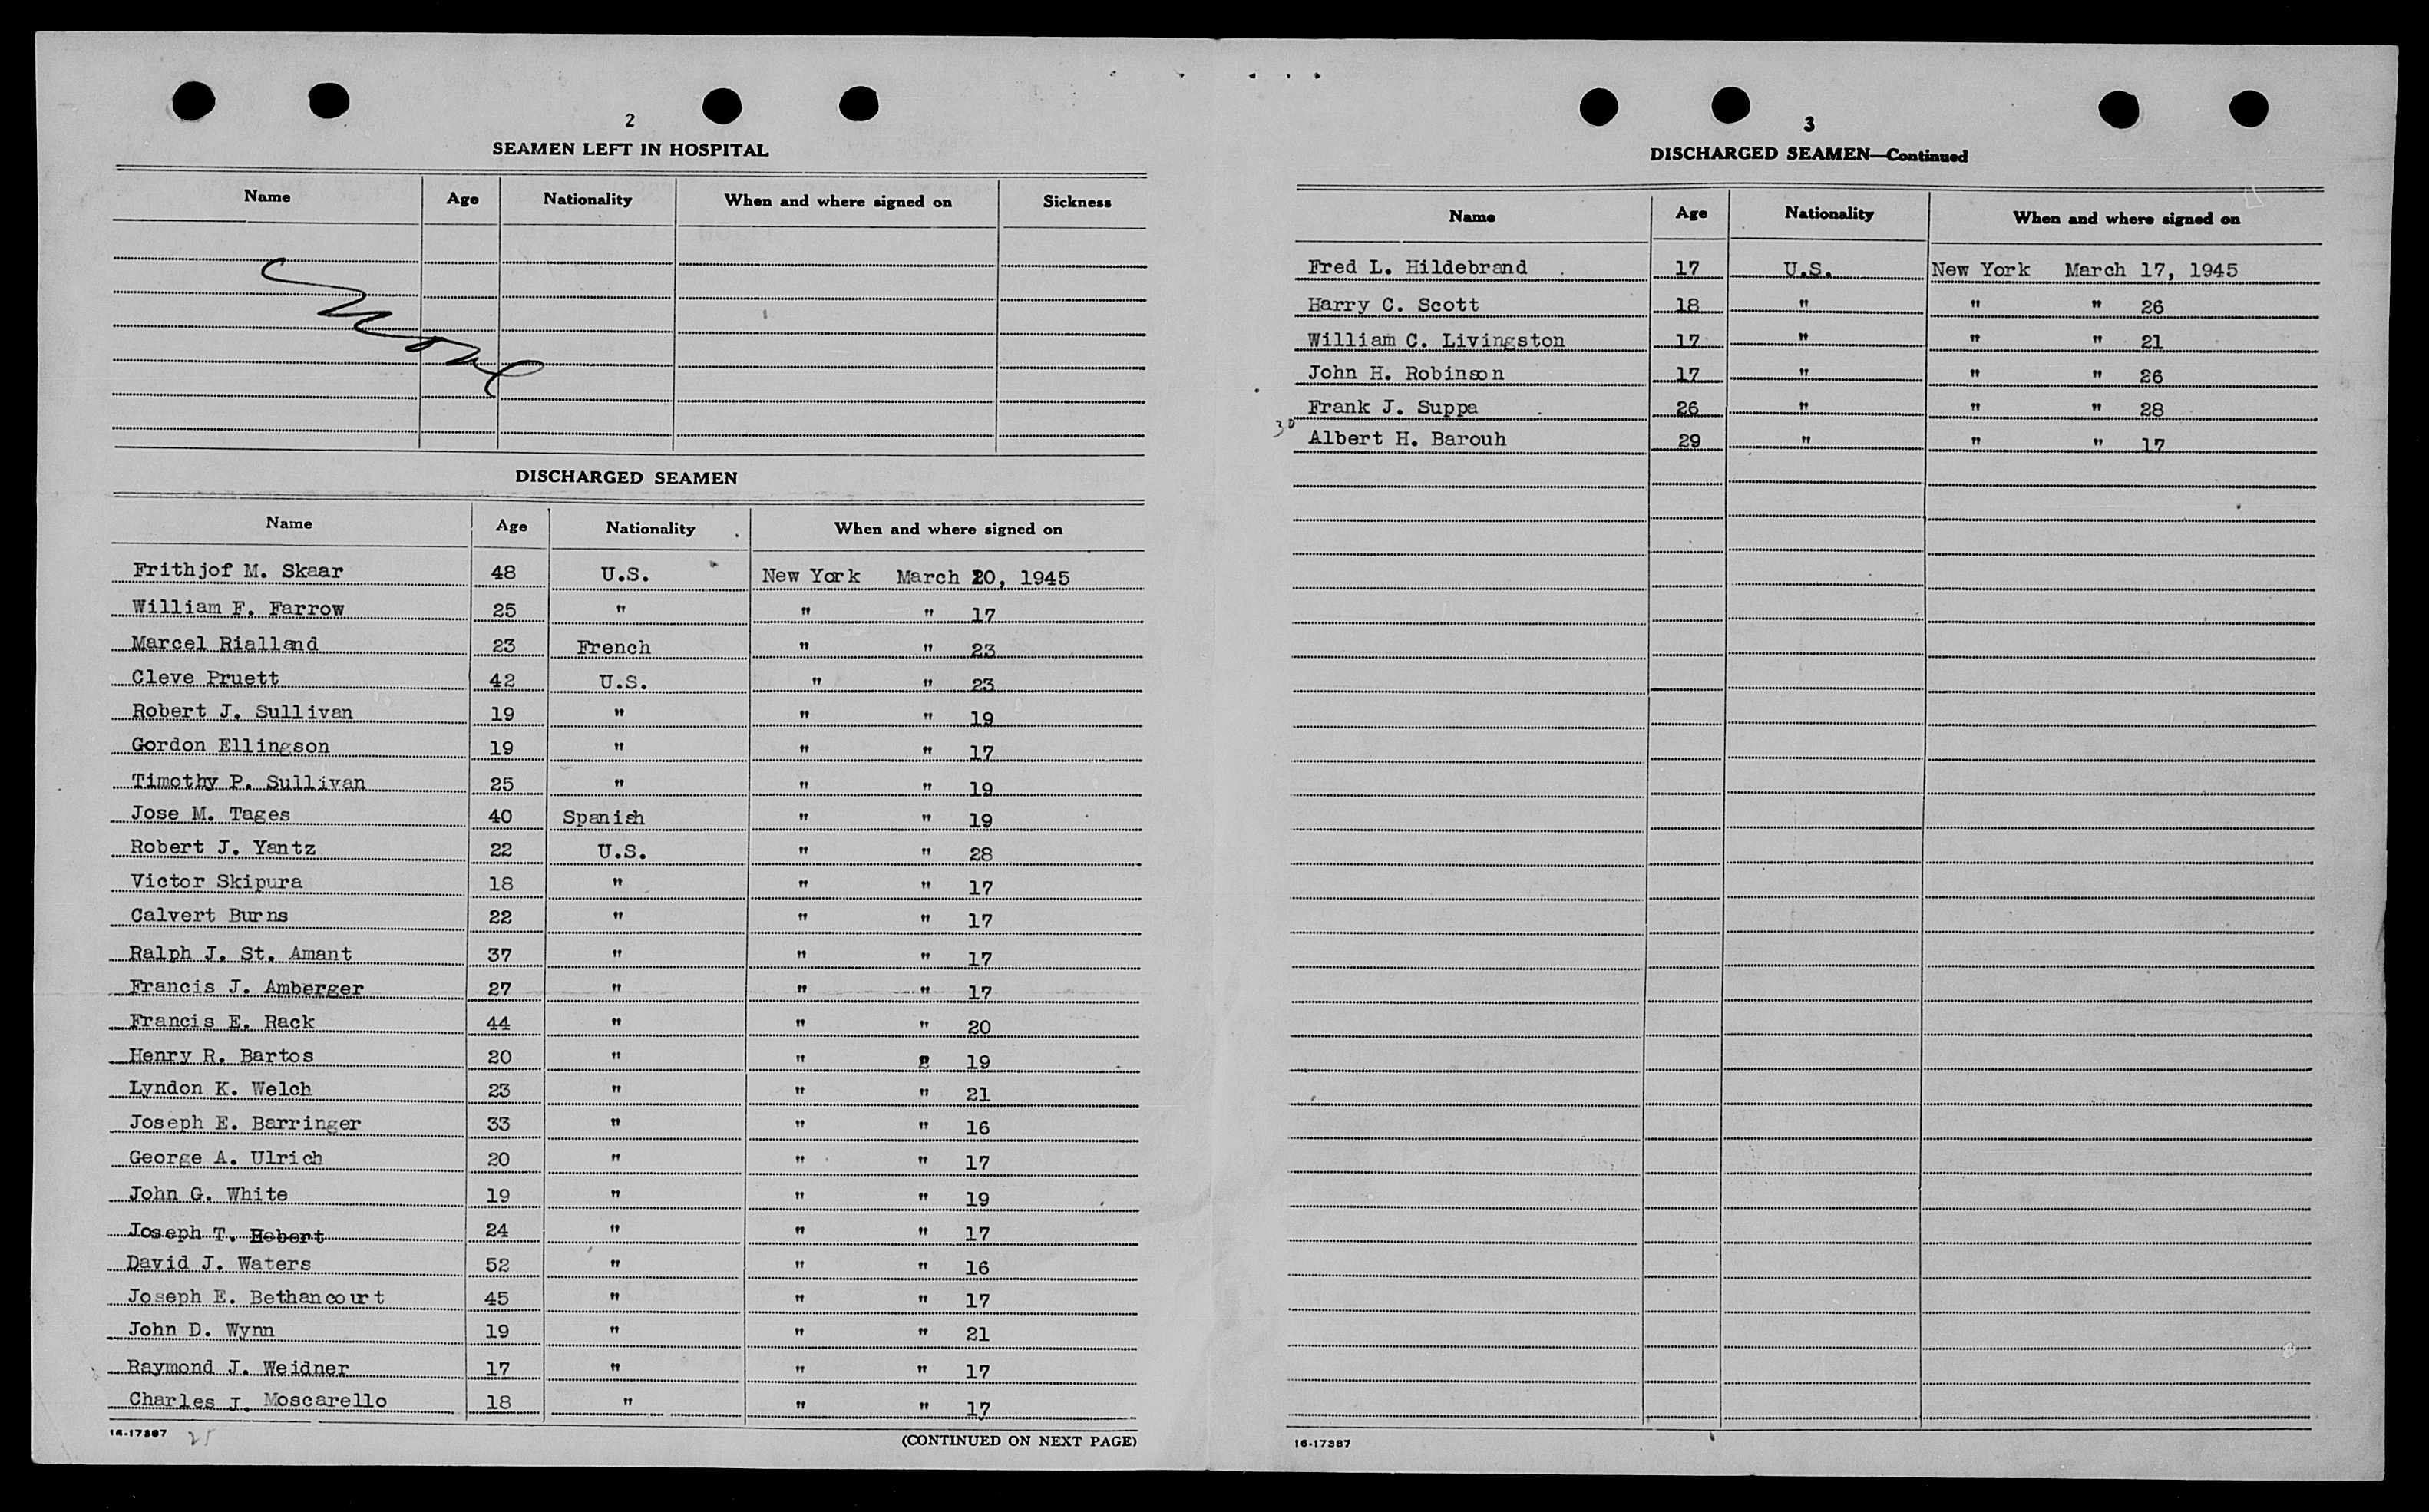 2
SEAMEN LEFT IN HOSPITAL
Name Age Nationality When and where signed on Sickness
None
DISCHARGED SEAMEN
Name Age Nationality When and where signed on
Frithjof M. Skaar 48 U.S. New York March 20, 1945
William F. Farrow 25 " " " 17
Marcel Rialland 23 French " " 23
Cleve Pruett 42 U.S. " " 23
Robert J. Sullivan 19 " " " 19
Gordon Ellingson 19 " " " 17
Timothy P. Sullivan 25 " " " 19
Jose M. Tages 40 Spanish " " 19
Robert J. Yantz 22 U.S. " " 28
Victor Skipura 18 " " " 17
Calvert Burns 22 " " " 17
Ralph J. St. Amant 37 " " " 17
Francis J. Amberger 27 " " " 17
Francis E. Rack 44 " " " 20
Henry R. Bartos 20 " " " 19
Lyndon K. Welch 23 " " " 21
Joseph E. Barringer 33 " " " 16
George A. Ulrich 20 " " " 17
John G. White 19 " " " 19
Joseph T. Hebert 24 " " " 17
David J. Waters 52 " " " 16
Joseph E. Bethancourt 45 " " " 17
John D. Wynn 19 " " " 21
Raymond J. Weidner 17 " " " 17
Charles J. Moscarello 18 " " " 17
16-17387 25 (CONTINUED ON NEXT PAGE)
3
DISCHARGED SEAMEN—Continued
Name Age Nationality When and where signed on
Fred L. Hildebrand 17 U.S. New York March 17, 1945
Harry C. Scott 18 " " " 26
William C. Livingston 17 " " " 21
John H. Robinson 17 " " " 26
Frank J. Suppa 26 " " " 28
30 Albert H. Barouh 29 " " " 17
16-17387